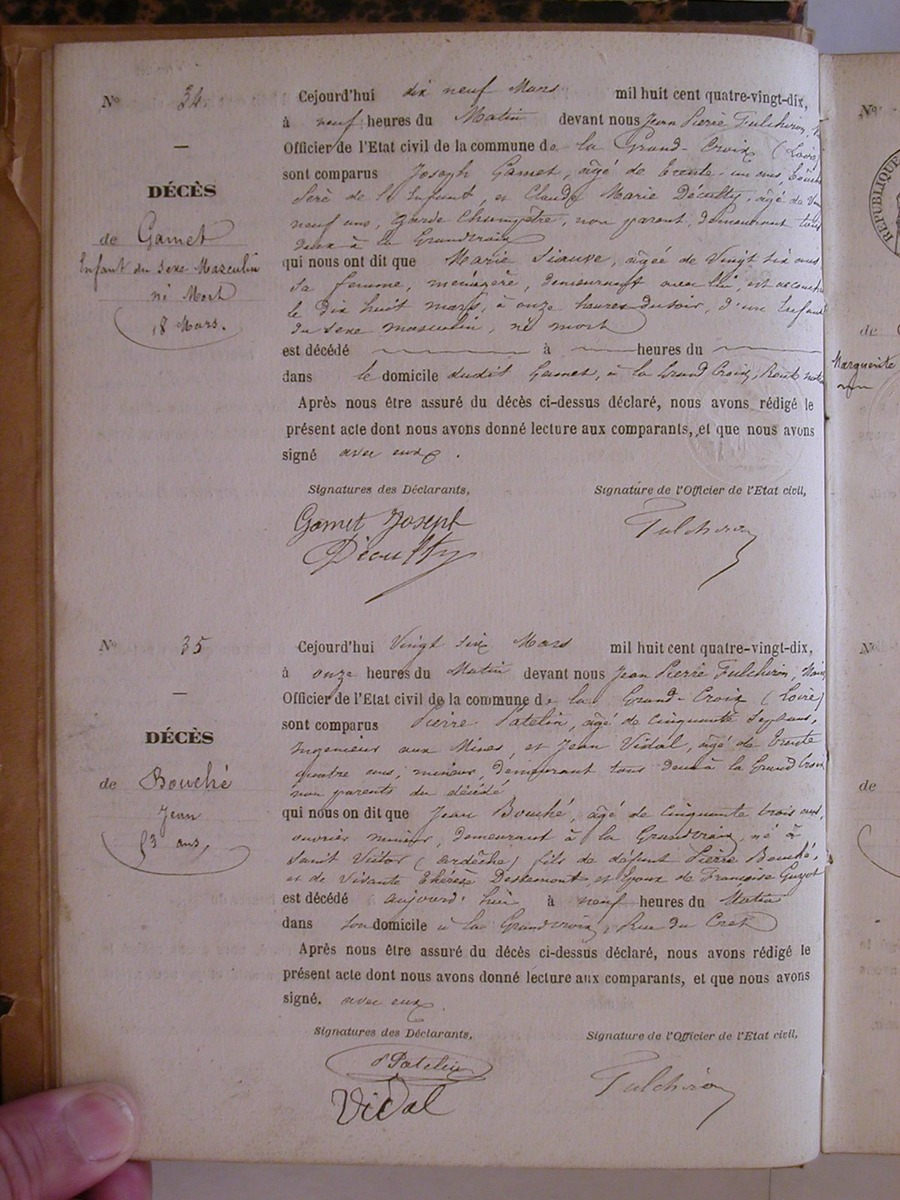 Nº 34.
DÉCÈS
de Gamet
Enfant du sexe Masculin
né Mort
18 Mars.
Cejourd'hui dix neuf Mars mil huit cent quatre-vingt-dix,
à neuf heures du Matin devant nous Jean Pierre Fulchiron,
Officier de l'Etat civil de la commune de la Grand-Croix (Loire)
sont comparus Joseph Gamet, âgé de trente un ans,
Père de l'Enfant, et Claude Marie Décultty, âgé de
neuf ans, Garde Champêtre, non parent, demeurant tous
deux à la Grandcroix
qui nous ont dit que Marie Siauve, âgée de Vingt six ans
sa femme, ménagère, demeurant avec lui, est accouchée
le Dix huit mars, à onze heures du soir, d'un Enfant
du sexe masculin, né mort
est décédé à heures du
dans le domicile dudit Gamet, à la Grand Croix,
Après nous être assuré du décès ci-dessus déclaré, nous avons rédigé le
présent acte dont nous avons donné lecture aux comparants, et que nous avons
signé avec eux.
Signatures des Déclarants,
Signature de l'Officier de l'Etat civil,
Gamet Joseph
Fulchiron
Décultty
Nº 35
DÉCÈS
de Bouché
Jean
53 ans,
Cejourd'hui Vingt six Mars mil huit cent quatre-vingt-dix,
à onze heures du Matin devant nous Jean Pierre Fulchiron, Maire
Officier de l'Etat civil de la commune de la Grand-Croix (Loire)
sont comparus Pierre Patelin, âgé de cinquante sept ans,
Ingenieur aux Mines, et Jean Vidal, âgé de trente
quatre ans, mineur, demeurant tous deux à la Grand Croix
non parents du décédé
qui nous on dit que Jean Bouché, âgé de cinquante trois ans,
ouvrier mineur, demeurant à la Grandcroix, né à
Saint Victor (ardèche) fils de défunt Pierre Bouché,
et de Vivante Thérèse Destemont, et Epoux de Françoise Guyot
est décédé aujourd'hui à neuf heures du Matin
dans son domicile à la Grandcroix, Rue du Cret
Après nous être assuré du décès ci-dessus déclaré, nous avons rédigé le
présent acte dont nous avons donné lecture aux comparants, et que nous avons
signé. avec eux
Signatures des Déclarants,
Signature de l'Officier de l'Etat civil,
Patelin
Fulchiron
Vidal
Nº
RÉPUBLIQUE
de
Marguerite
Nº
de